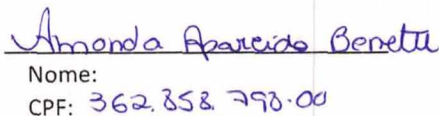 Amanda Aparecida Benetti
Nome:
CPF: 362.858.798-00